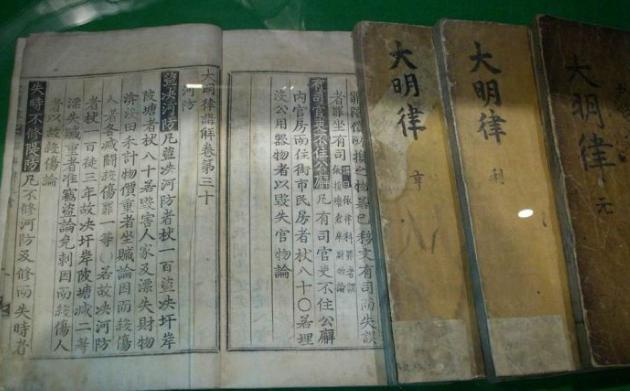 大明律
元
大明律
利
大明律
移文有司而失誤
者罪坐有司
有司官吏不住公廨凡有司官吏不住公廨
內官房而住街市民房者杖八十○若埋
沒公用器物者以毀失官物論
大明律講解卷第三十
河防
盜決河防凡盜決河防者杖一百盜決圩岸
陂塘者杖八十若毀害人家及漂失財物
渰沒田禾計物價重者坐贓論因而殺傷
人者各減鬪殺傷罪一等○若故決河防
者杖一百徒三年故決圩岸陂塘減二等
漂失贓重者准竊盜論免刺因而殺傷人
者以故殺傷論
失時不修隄防凡不修河防及修而失時者